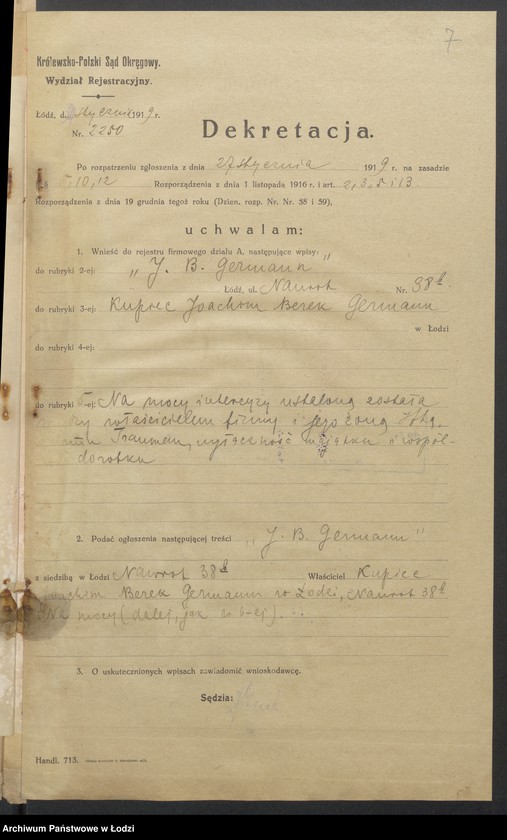 7
Królewsko-Polski Sąd Okręgowy.
Wydział Rejestracyjny.
Łódź, d. stycznia 1919 r.
Nr. 2250
Dekretacja.
Po rozpatrzeniu zgłoszenia z dnia 27 stycznia 1919 r. na zasadzie
10, 12 Rozporządzenia z dnia 1 listopada 1916 r. i art. 2, 3, 5 i 13
Rozporządzenia z dnia 19 grudnia tegoż roku (Dzien. rozp. Nr. Nr. 58 i 59),
uchwalam:
1. Wnieść do rejestru firmowego działu A. następujące wpisy:
do rubryki 2-ej: „J. B. Germann"
Łódź, ul. Nawrot Nr. 38
do rubryki 3-ej: Kupiec Joachim Berek Germann
w Łodzi
do rubryki 4-ej:
do rubryki -ej: Na mocy intercyzy ustaloną została
właścicielem firmy i jego żoną
wyłączność majątku i współ-
dorobku
2. Podać ogłoszenia następującej treści „J. B. Germann"
z siedzibą w Łodzi Nawrot 38 Właściciel Kupiec
Joachim Berek Germann w Łodzi, Nawrot 38
Na mocy (dalej, jak w 6-ej).
3. O uskutecznionych wpisach zawiadomić wnioskodawcę.
Sędzia:
Handl. 713.
Archiwum Państwowe w Łodzi